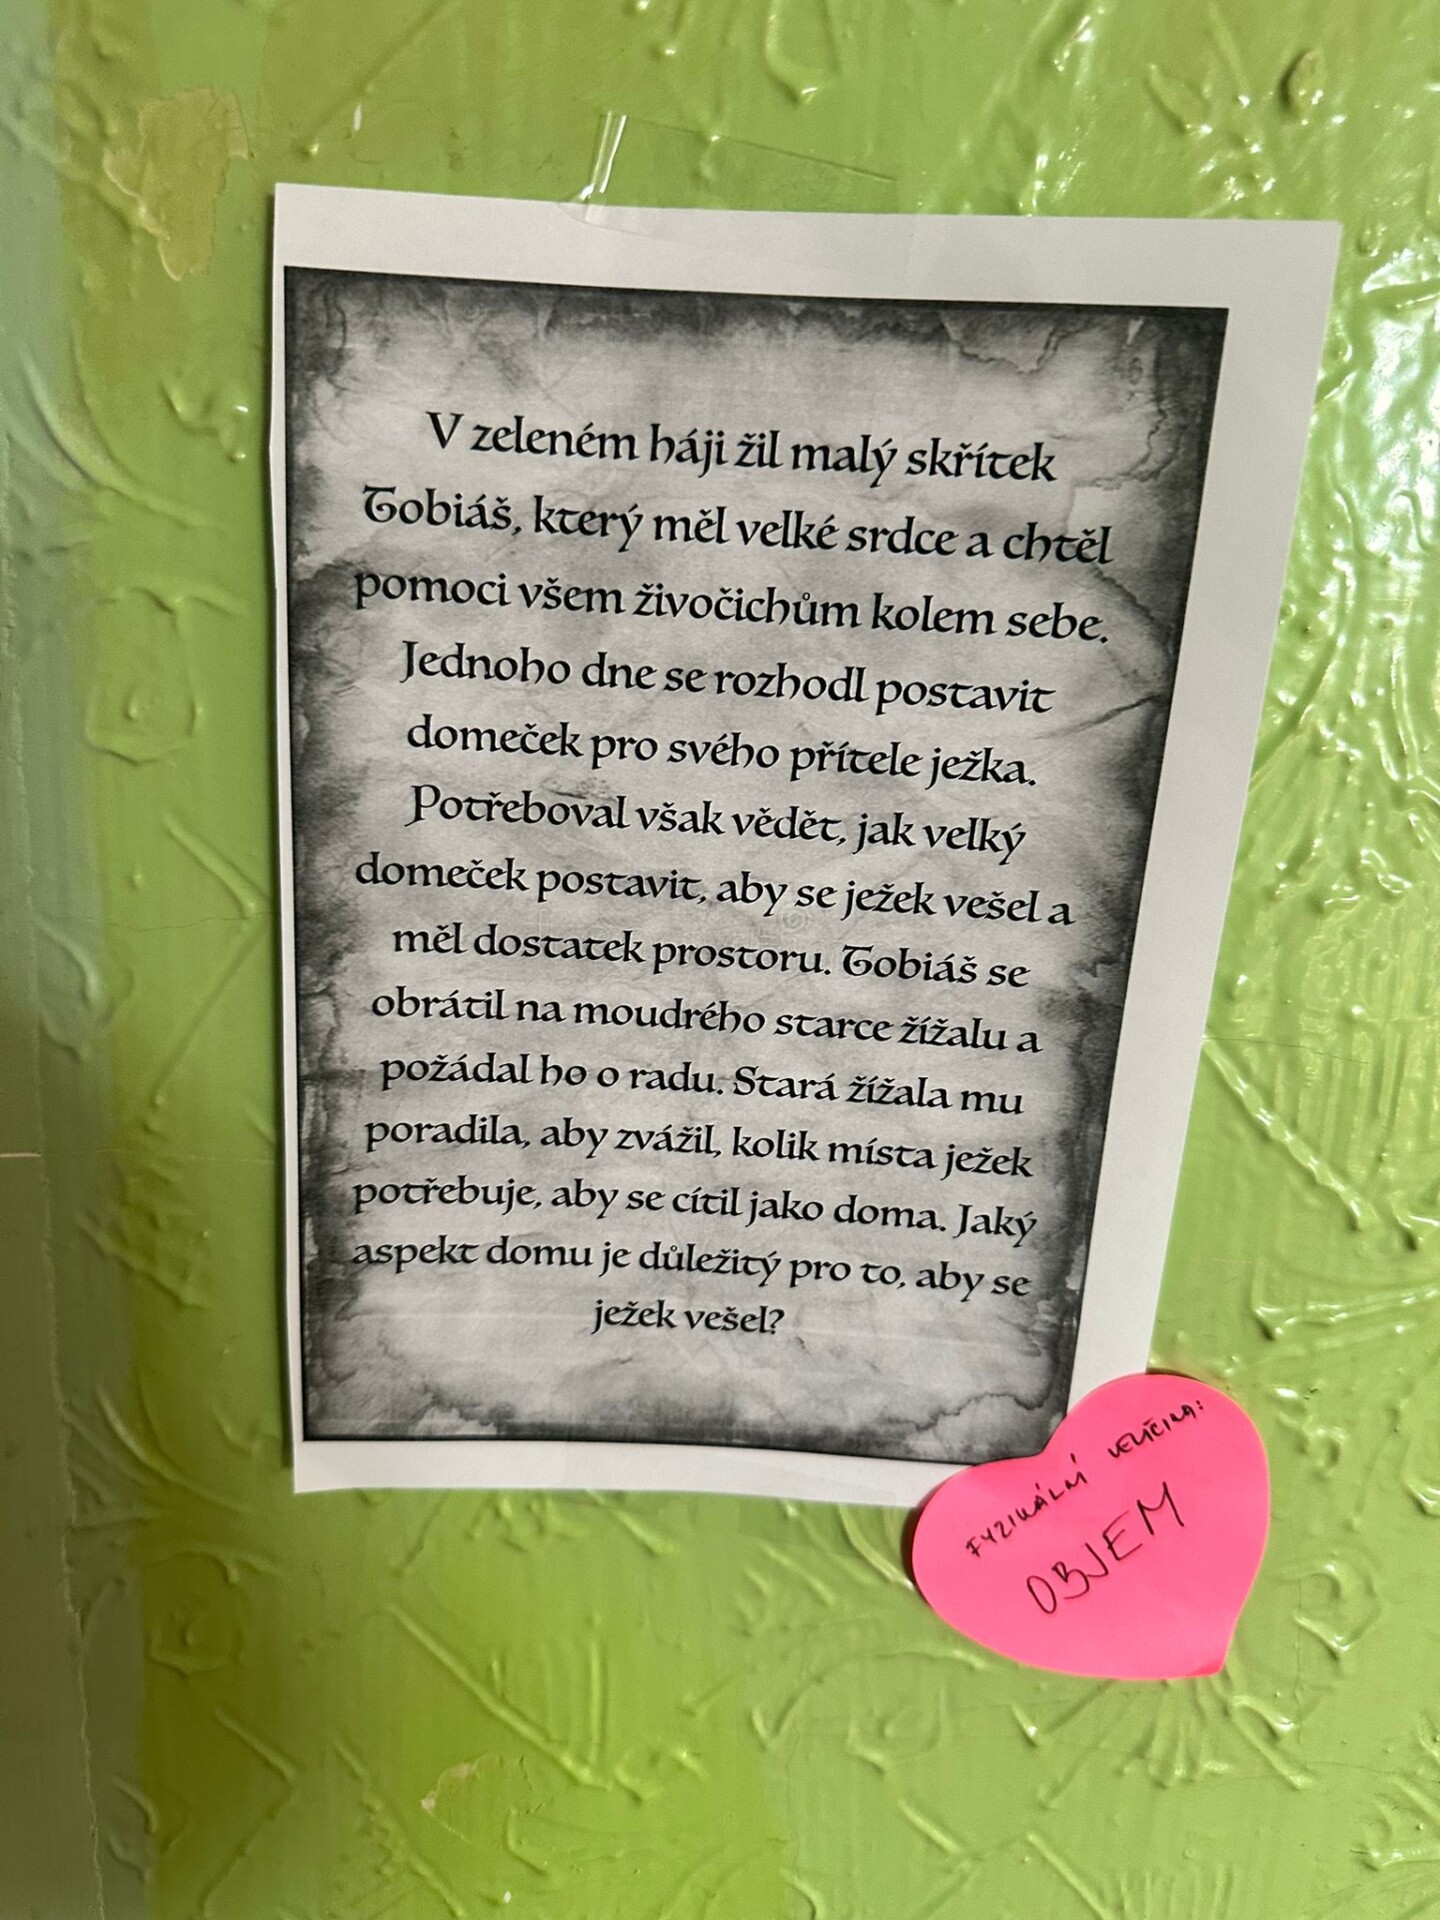 V zeleném háji žil malý skřítek
Tobiáš, který měl velké srdce a chtěl
pomoci všem živočichům kolem sebe.
Jednoho dne se rozhodl postavit
domeček pro svého přítele ježka.
Potřeboval však vědět, jak velký
domeček postavit, aby se ježek vešel a
měl dostatek prostoru. Tobiáš se
obrátil na moudrého starce žížalu a
požádal ho o radu. Stará žížala mu
poradila, aby zvážil, kolik místa ježek
potřebuje, aby se cítil jako doma. Jaký
aspekt domu je důležitý pro to, aby se
ježek vešel?
FYZIKÁLNÍ VELIČINA:
OBJEM